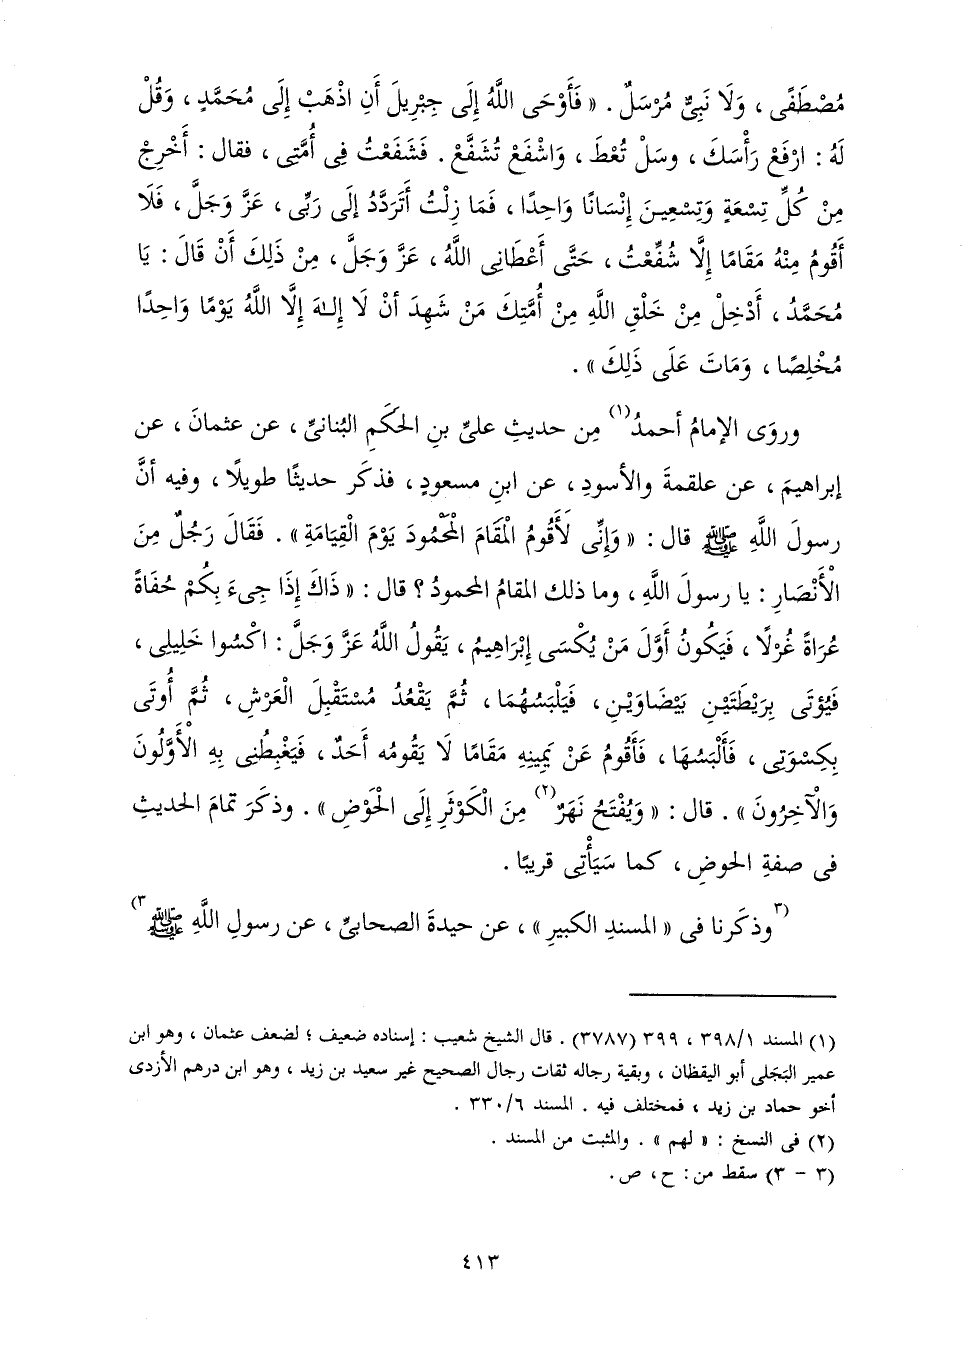 مُصْطَفًى ، وَلَا نَبِيٌّ مُرْسَلٌ . « فَأَوْحَى اللَّهُ إِلَى جِبْرِيلَ أَنِ اذْهَبْ إِلَى مُحَمَّدٍ ، وَقُلْ
لَهُ : ارْفَعْ رَأْسَكَ ، وسَلْ تُعْطَ ، وَاشْفَعْ تُشَفَّعْ . فَشَفَعْتُ فِى أُمَّتِى ، فقال : أَخْرِجْ
مِنْ كُلِّ تِسْعَةٍ وَتِسْعِينَ إِنْسَانًا وَاحِدًا ، فَمَا زِلْتُ أَتَرَدَّدُ إِلَى رَبِّى ، عَزَّ وَجَلَّ ، فَلَا
أَقُومُ مِنْهُ مَقَامًا إِلَّا شُفِّعْتُ ، حَتَّى أَعْطَانِى اللَّهُ ، عَزَّ وَجَلَّ ، مِنْ ذَلِكَ أَنْ قَالَ : يَا
مُحَمَّدُ ، أَدْخِلْ مِنْ خَلْقِ اللَّهِ مِنْ أُمَّتِكَ مَنْ شَهِدَ أنْ لَا إِلهَ إِلَّا اللَّهُ يَوْمًا وَاحِدًا
مُخْلِصًا ، وَمَاتَ عَلَى ذَلِكَ » .
وروَى الإمامُ أحمدُ(١) مِن حديثِ علىِّ بنِ الحكَمِ البُنانىِّ ، عن عثمانَ ، عن
إبراهيمَ ، عن علقمةَ والأسودِ ، عن ابنِ مسعودٍ ، فذكَر حديثًا طويلًا ، وفيه أنَّ
رسولَ اللَّهِ ﷺ قال : « وَإِنِّى لَأَقُومُ الْمَقَامَ الْمَحْمُودَ يَوْمَ الْقِيَامَةِ » . فَقَالَ رَجُلٌ مِنَ
الْأَنْصَارِ : يا رسولَ اللَّهِ ، وما ذلك المقامُ المحمودُ ؟ قال : « ذَاكَ إِذَا جِىءَ بِكُمْ حُفَاةً
عُرَاةً غُرْلًا ، فَيَكُونُ أَوَّلَ مَنْ يُكْسَى إِبْرَاهِيمُ ، يَقُولُ اللَّهُ عَزَّ وَجَلَّ : اكْسُوا خَلِيلِى ،
فَيُؤتَى بِرَيْطَتَيْنِ بَيْضَاوَيْنِ ، فَيَلْبَسُهُمَا ، ثُمَّ يَقْعُدُ مُسْتَقْبِلَ الْعَرْشِ ، ثُمَّ أُوتَى
بِكِسْوَتِى ، فَأَلْبَسُهَا ، فَأَقُومُ عَنْ يَمِينِهِ مَقَامًا لَا يَقُومُه أَحَدٌ ، فَيَغْبِطُنِى بِهِ الْأَوَّلُونَ
وَالْآخِرُونَ » . قال : « وَيُفْتَحُ نَهَرٌ(٢) مِنَ الْكَوْثَرِ إِلَى الْحَوْضِ » . وذكَرَ تمامَ الحديثِ
فى صفةِ الحوضِ ، كما سَيَأْتِى قريبًا .
(٣وذكَرنا فى « المسندِ الكبيرِ » ، عن حيدةَ الصحابىِّ ، عن رسولِ اللَّهِ ﷺ٣)
(١) المسند ٣٩٨/١ ، ٣٩٩ (٣٧٨٧) . قال الشيخ شعيب : إسناده ضعيف ؛ لضعف عثمان ، وهو ابن
عمير البَجَلى أبو اليقظان ، وبقية رجاله ثقات رجال الصحيح غير سعيد بن زيد ، وهو ابن درهم الأزدى
أخو حماد بن زيد ، فمختلف فيه . المسند ٣٣٠/٦ .
(٢) فى النسخ : « لهم » . والمثبت من المسند .
(٣ - ٣) سقط من : ح ، ص .
٤١٣